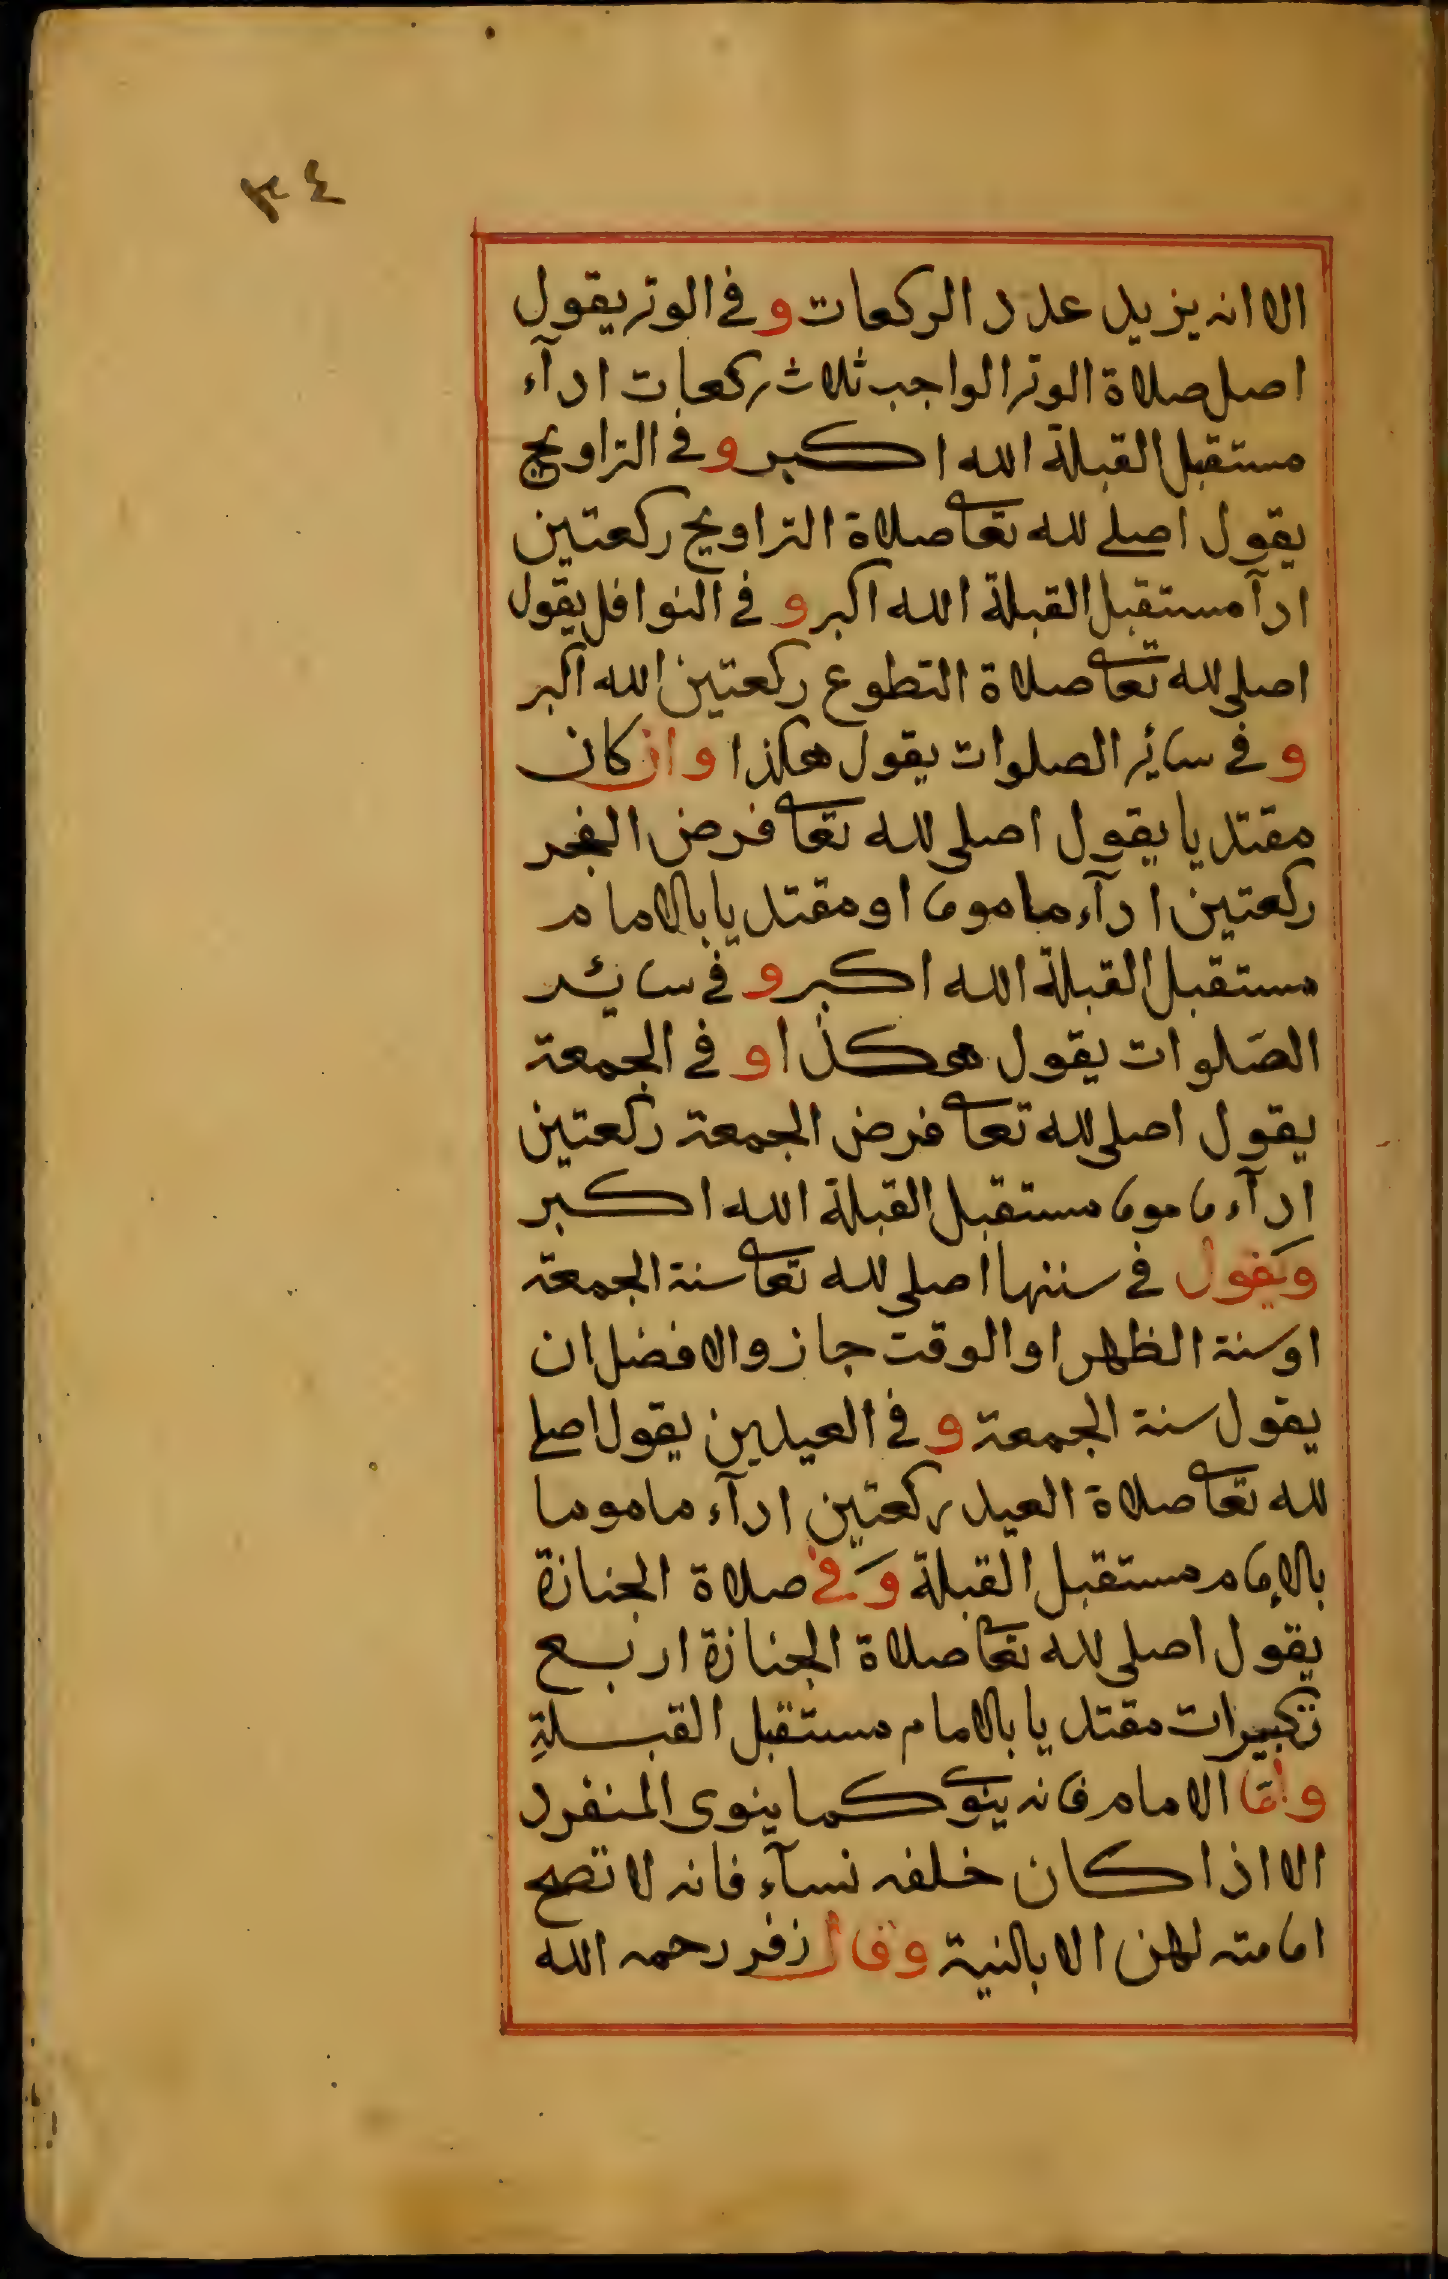 ٣٤
الا انه يزيد عدد الركعات وفي الوتر يقول
اصل صلاة الوتر الواجب ثلاث ركعات ادآء
مستقبل القبلة الله اكبر وفي التراويح
يقول اصلے لله تعا صلاة التراويح ركعتين
ادآ مستقبل القبلة الله اكبر و في النوافل يقول
اصلى لله تعا صلاة التطوع ركعتين الله اكبر
و في سائر الصلوات يقول هكذا وان كان
مقتديا يقول اصلى لله تعا فرض الفجر
ركعتين ادآء ماموما او مقتديا بالامام
مستقبل القبلة الله اكبر و في سائر
الصَلوات يقول هكذا و في الجمعة
يقول اصلى لله تعا فرض الجمعة ركعتين
ادآء ماموما مستقبل القبلة الله اكبر
ويقول في سننها اصلى لله تعا سنة الجمعة
او سنة الظهر او الوقت جاز والافضل ان
يقول سنة الجمعة و في العيدين يقول اصلے
لله تعا صلاة العيد ركعتين ادآء ماموما
بالإمام مستقبل القبلة وَفي صلاة الجنازة
يقول اصلى لله تعا صلاة الجنازة اربع
تكبيرات مقتديا بالامام مستقبل القبلةِ
وامّا الامام فانه ينوي كما ينوى المنفرد
الا اذا كان خلفه نسآء فانه لا تصح
امامته لهن الا بالنية وقال زفر رحمه الله